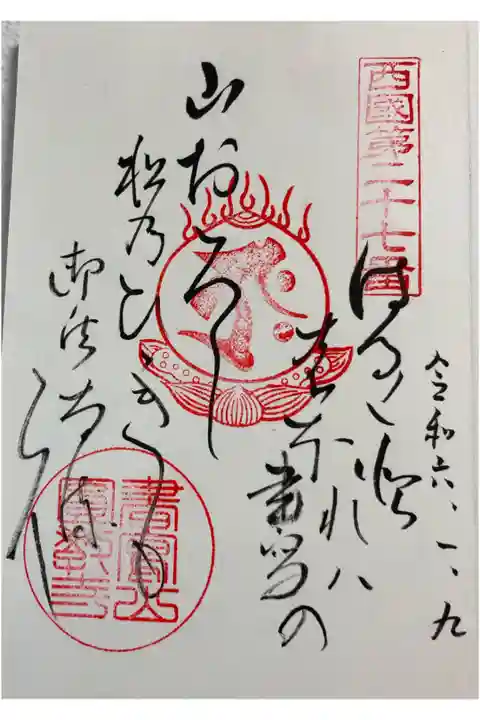 令和六、一、九
西國第二十七番
はる〱と
れハ
書写の
山おろし
松乃ひゞきも
御法なるらん
書寫山
圓教寺